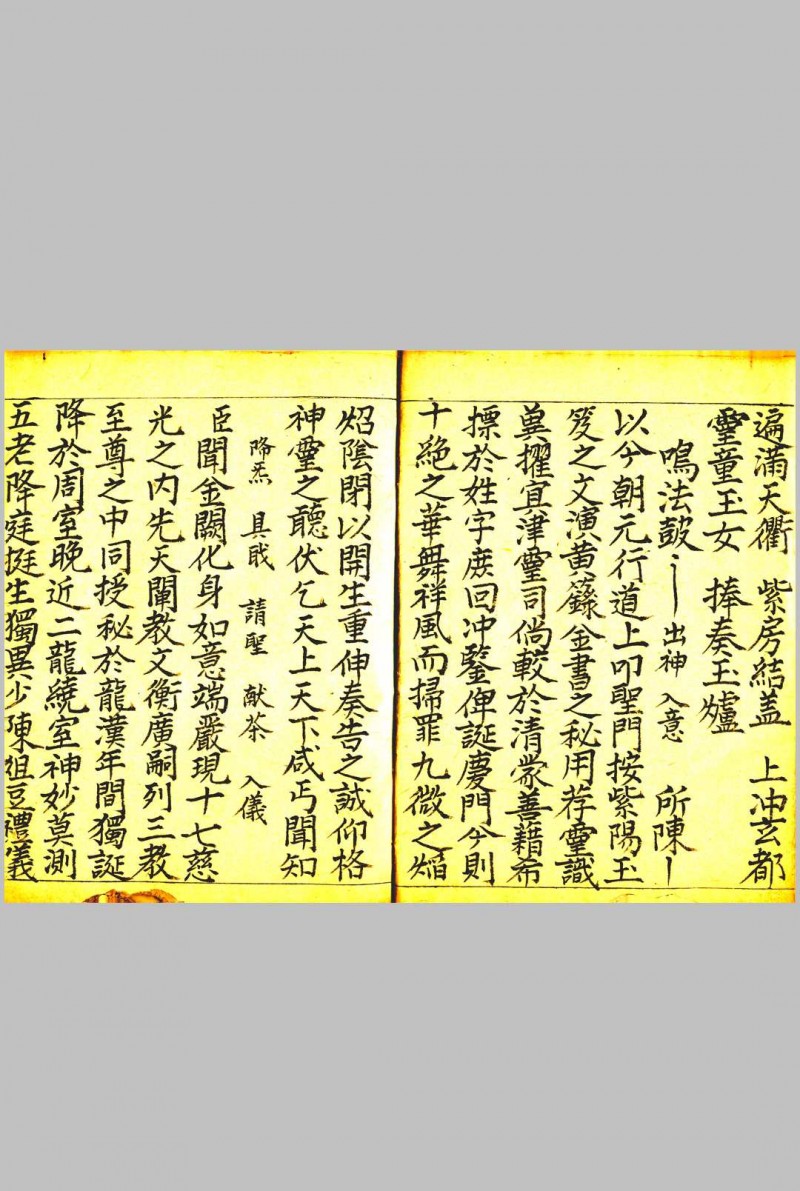 遍滿天衢　紫房結盖　上冲玄都
霊童玉女　捧奏玉爐
鳴法鼓　出神　入意　所陳
以今朝元行道上叩聖門按紫陽玉
笈之文演黄籙金書之秘用荐霊識
兾擢冥津霊司倘較於清蒙善藉希
摽於姓字庻回冲鑒俾誕慶門今則
十絶之華舞祥風而掃罪九微之熖
炤陰閉以開生重伸奏告之誠仰格
神霊之聼伏乞天上天下咸丐聞知
降炁　具戝　請聖　献茶　入儀
臣聞金闕化身如意端嚴現十七慈
光之内先天闡教文衡廣嗣列三教
至尊之中同授秘於龍漢年間獨誕
降於周室晚近二龍繞室神妙莫測
五老降庭挺生獨異少陳俎豆禮儀